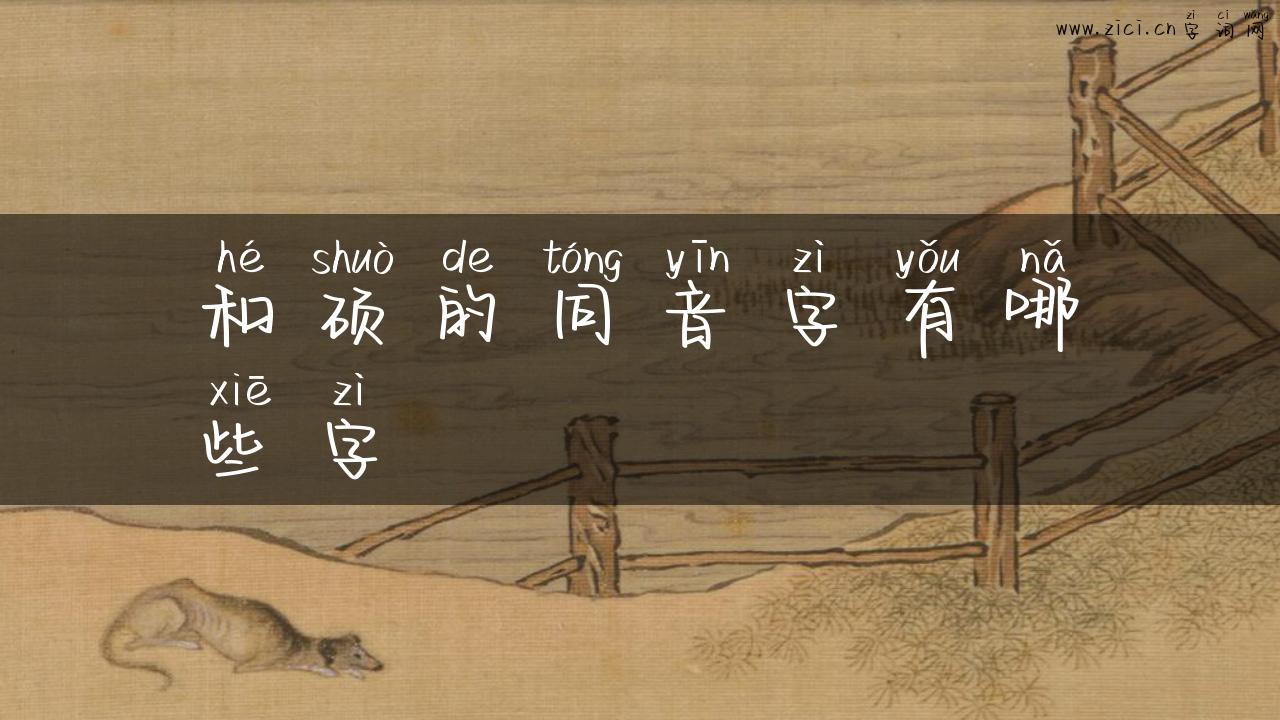 zì cí wǎng
www.zici.cn 字词网
hé shuò de tóng yīn zì yǒu nǎ
和硕的同音字有哪
xiē zì
些字